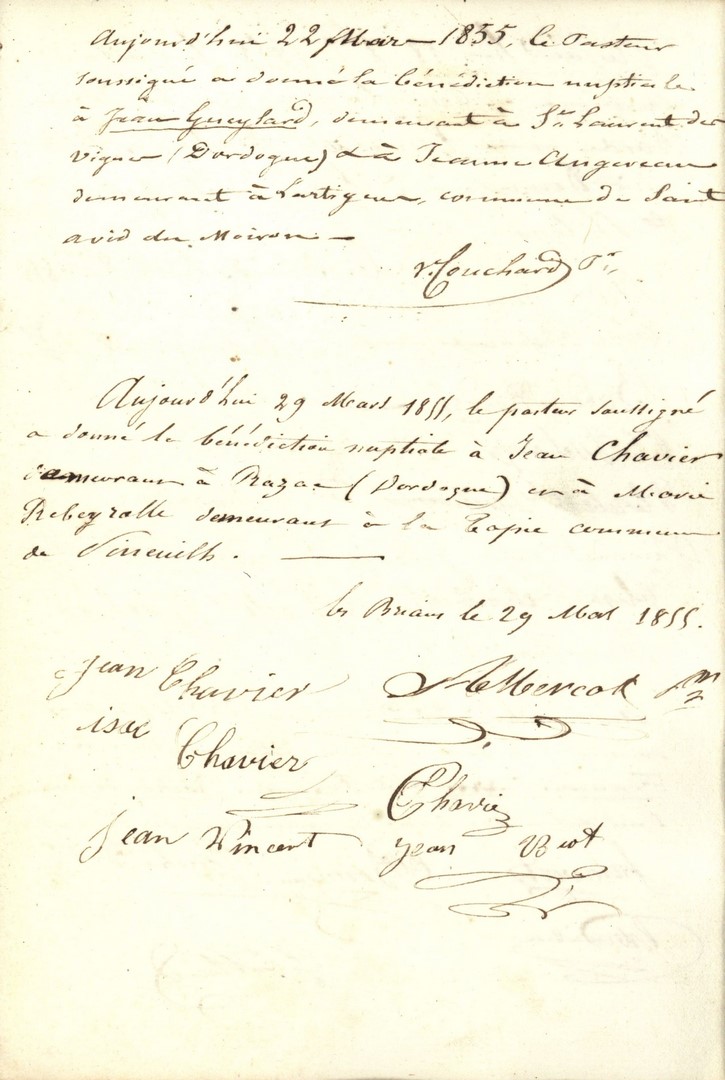 Aujourd'hui 22 Mars 1855, le Pasteur
soussigné a donné la bénédiction nuptiale
à Jean Gueylard, demeurant à St. Laurent des
vignes (Dordogne) & à Jeanne Angereau
demeurant à Lartigue, commune de Saint
avid du Moiron —
Couchard Pr.
Aujourd'hui 29 Mars 1855, le pasteur soussigné
a donné la bénédiction nuptiale à Jean Chavier
demeurant à Razac (Dordogne) et à Marie
Rebeyrolle demeurant à la Tapie commune
de Pineuilh. —
les Briaux le 29 Mars 1855.
Jean Chavier
isac
Chavier
Chavier
jean Vincent jean